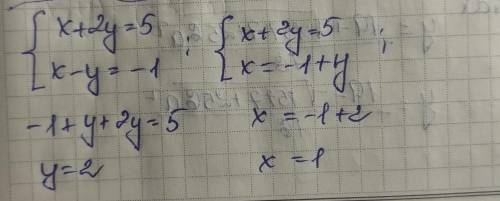 { x+2y=5 ; { x+2y=5 ;
{ x-y=-1 { x=-1+y
-1+y+2y=5 x=-1+2
y=2 x=1